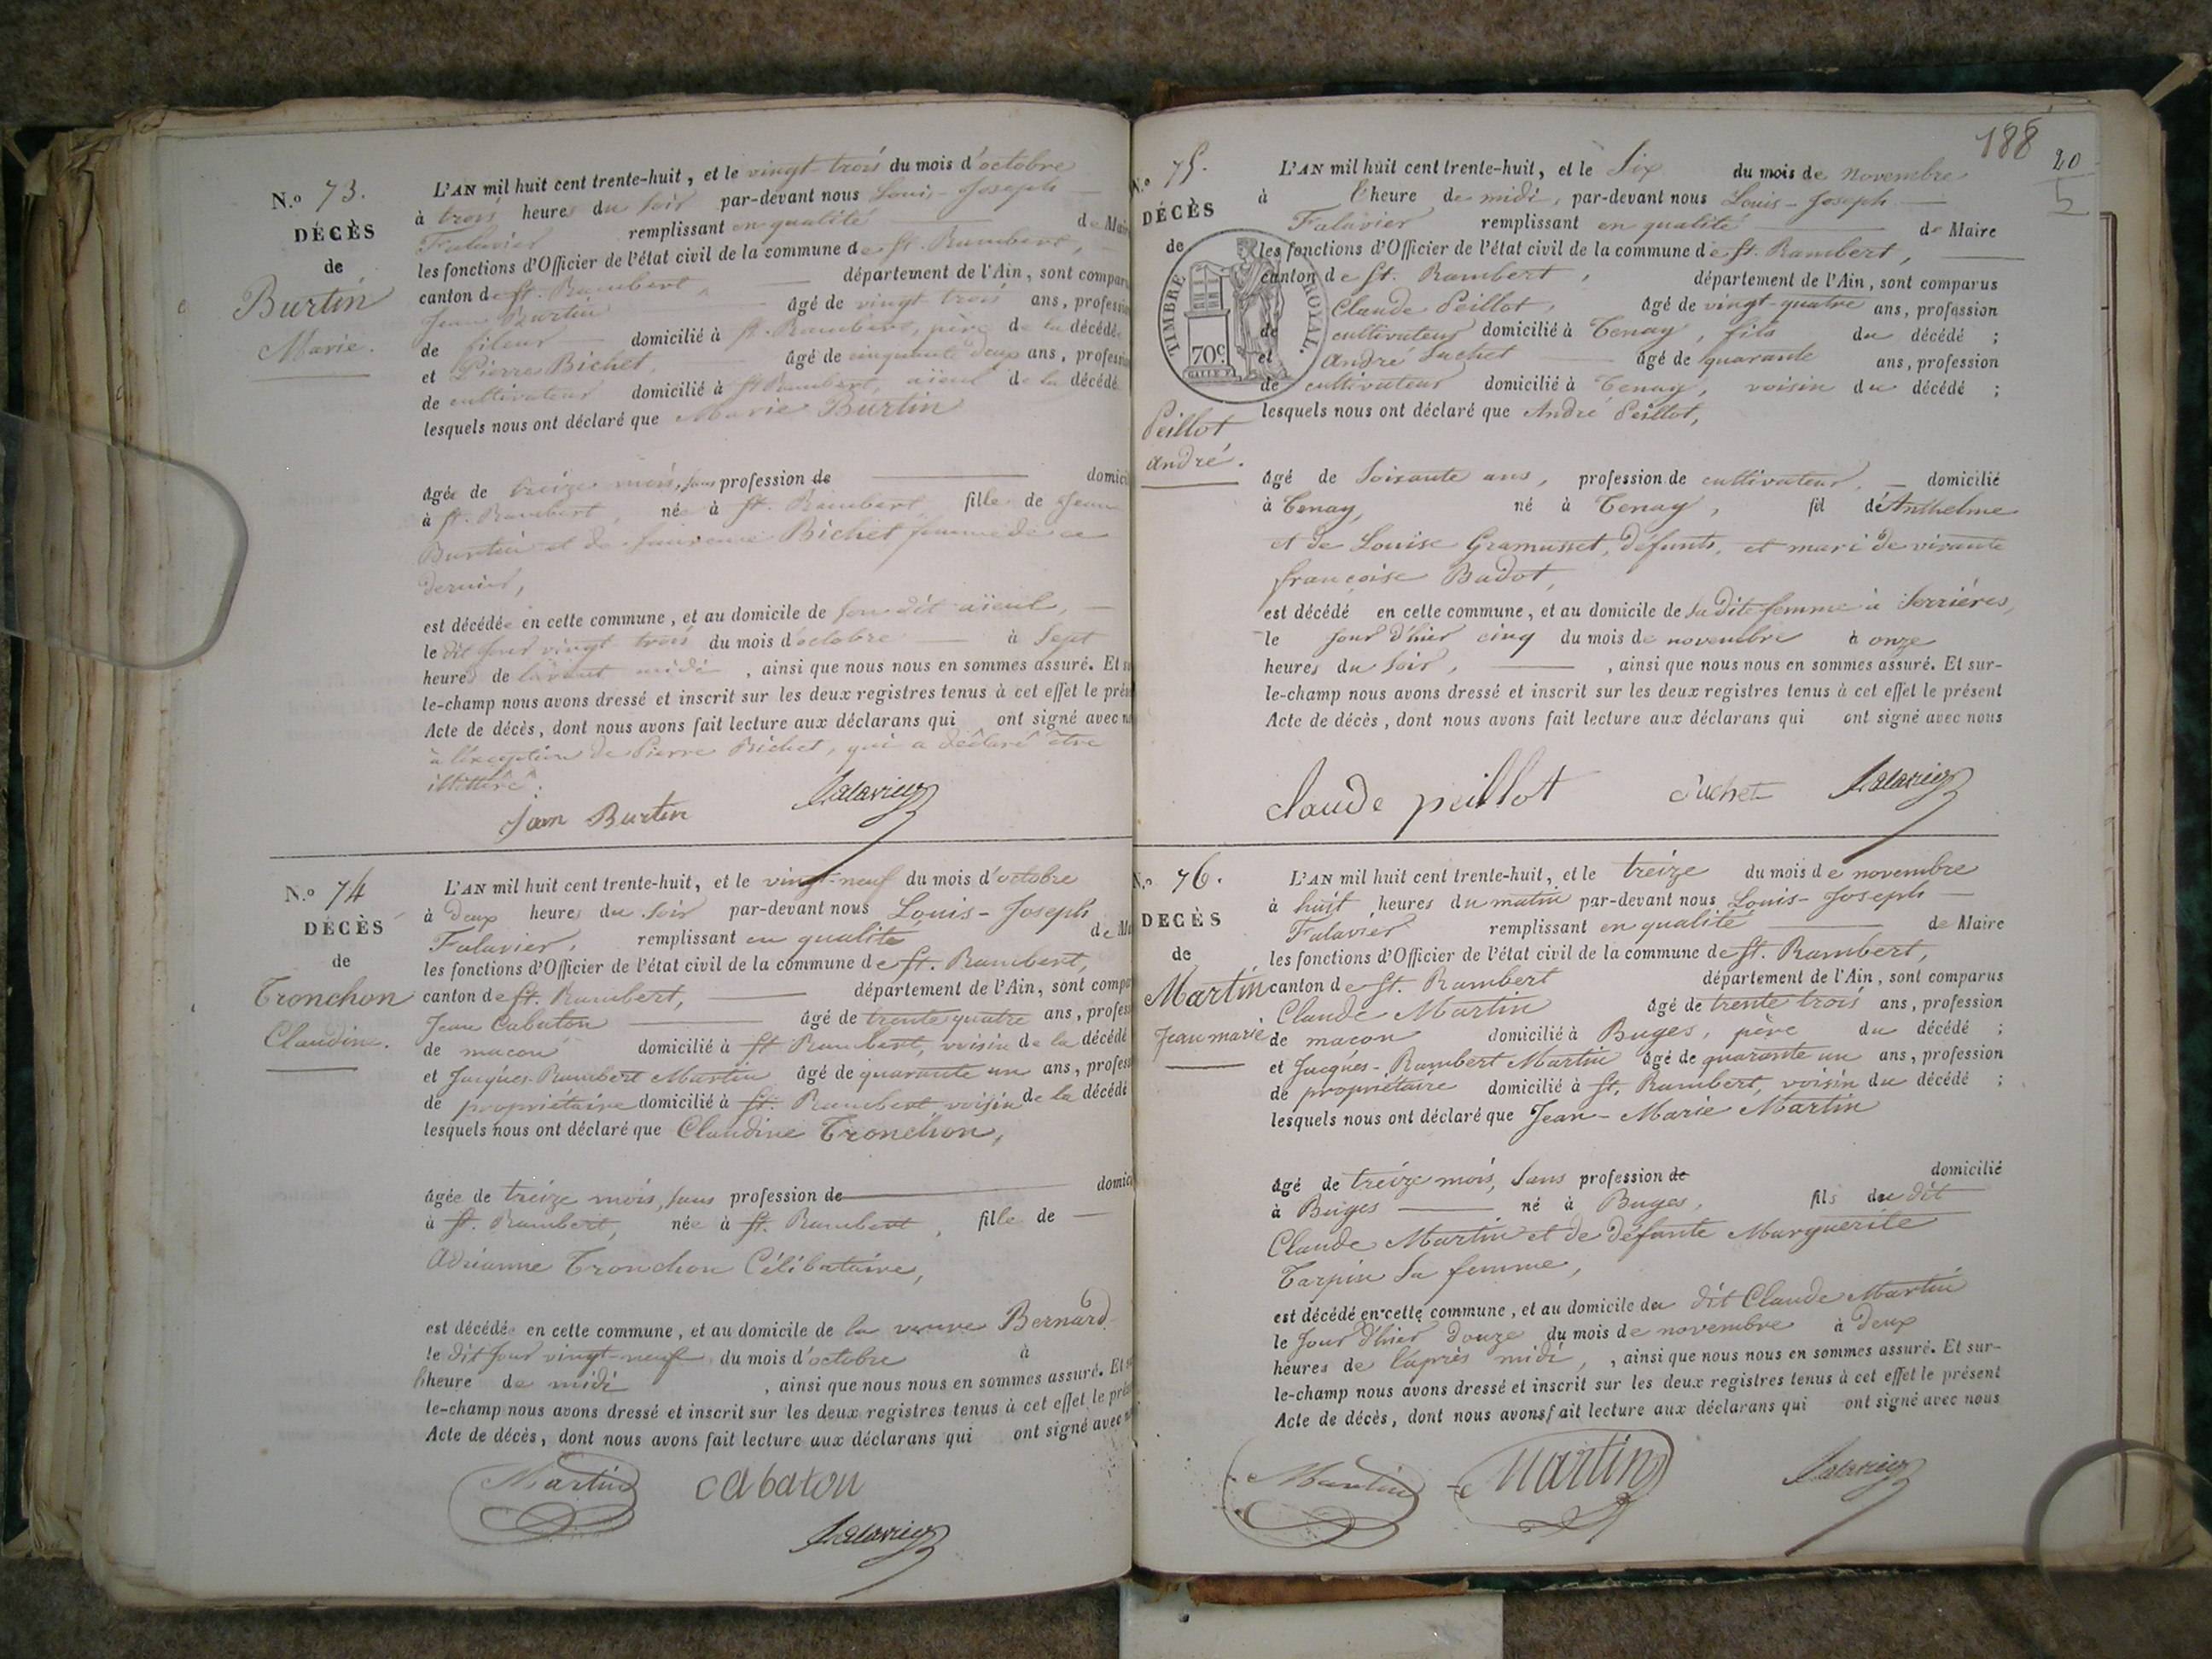 N.º 73.
DÉCÈS
de
Burtin
Marie.
L'AN mil huit cent trente-huit, et le vingt-trois du mois d'octobre
à trois heures du soir par-devant nous Louis-Joseph
Falavier remplissant en qualité de Mai
les fonctions d'Officier de l'état civil de la commune de St. Rambert,
canton de St. Rambert, département de l'Ain, sont compar
Jean Burtin âgé de vingt trois ans, professi
de fileur domicilié à St. Rambert, père de la décédée
et Pierre Bichet, âgé de cinquante deux ans, professi
de cultivateur domicilié à St Rambert, aïeul de la décédé
lesquels nous ont déclaré que Marie Burtin
âgée de treize mois, sans profession de domici
à St. Rambert, née à St. Rambert, fille de Jean
Burtin et de Bichet femme de ce
dernier,
est décédée en cette commune, et au domicile de son dit aïeul,
le dit jour vingt trois du mois d'octobre à sept
heures de l'avant midi, ainsi que nous nous en sommes assuré. Et su
le-champ nous avons dressé et inscrit sur les deux registres tenus à cet effet le prés
Acte de décès, dont nous avons fait lecture aux déclarans qui ont signé avec n
à l'exception de Pierre Bichet, qui a déclaré être
illettré.
Jean Burtin Falavier
N.º 74
DÉCÈS
de
Tronchon
Claudine.
L'AN mil huit cent trente-huit, et le vingt-neuf du mois d'octobre
à deux heures du soir par-devant nous Louis-Joseph
Falavier, remplissant en qualité de Ma
les fonctions d'Officier de l'état civil de la commune de St. Rambert,
canton de St. Rambert, département de l'Ain, sont compa
Jean Cabaton âgé de trente quatre ans, profess
de maçon domicilié à St Rambert, voisin de la décédé
et Jacques-Rambert Martin âgé de quarante un ans, profess
de propriétaire domicilié à St. Rambert, voisin de la décédé
lesquels nous ont déclaré que Claudine Tronchon,
âgée de treize mois, sans profession de domici
à St. Rambert, née à St. Rambert, fille de
Adrianne Tronchon Célibataire,
est décédée en cette commune, et au domicile de la veuve Bernard
le dit jour vingt-neuf du mois d'octobre à
l'heure de midi, ainsi que nous nous en sommes assuré. Et s
le-champ nous avons dressé et inscrit sur les deux registres tenus à cet effet le prés
Acte de décès, dont nous avons fait lecture aux déclarans qui ont signé avec n
Martin Cabaton
Falavier
188
20
5
N.º 75.
DÉCÈS
de
TIMBRE ROYAL.
70c
Peillot
André.
L'AN mil huit cent trente-huit, et le Six du mois de novembre
à l'heure de midi, par-devant nous Louis-Joseph
Falavier remplissant en qualité de Maire
les fonctions d'Officier de l'état civil de la commune de St. Rambert,
canton de St. Rambert, département de l'Ain, sont comparus
Claude Peillot, âgé de vingt-quatre ans, profession
de cultivateur domicilié à Tenay, fils du décédé ;
et André Suchet âgé de quarante ans, profession
de cultivateur domicilié à Tenay, voisin du décédé ;
lesquels nous ont déclaré que André Peillot,
âgé de soixante ans, profession de cultivateur, domicilié
à Tenay, né à Tenay, fil d'Anthelme
et de Louise Gramusset, défunts, et mari de vivante
françoise Badot,
est décédé en cette commune, et au domicile de sa dite femme à Serrières,
le jour d'hier cinq du mois de novembre à onze
heures du soir, , ainsi que nous nous en sommes assuré. Et sur-
le-champ nous avons dressé et inscrit sur les deux registres tenus à cet effet le présent
Acte de décès, dont nous avons fait lecture aux déclarans qui ont signé avec nous
Claude peillot Suchet Falavier
N.º 76.
DÉCÈS
de
Martin
Jean marie
L'AN mil huit cent trente-huit, et le treize du mois de novembre
à huit heures du matin par-devant nous Louis-Joseph
Falavier remplissant en qualité de Maire
les fonctions d'Officier de l'état civil de la commune de St. Rambert,
canton de St. Rambert département de l'Ain, sont comparus
Claude Martin âgé de trente trois ans, profession
de maçon domicilié à Buges, père du décédé ;
et Jacques-Rambert Martin âgé de quarante un ans, profession
de propriétaire domicilié à St. Rambert, voisin du décédé ;
lesquels nous ont déclaré que Jean-Marie Martin
âgé de treize mois, sans profession de domicilié
à Buges né à Buges, fils du dit
Claude Martin et de défunte Marguerite
Tarpin sa femme,
est décédé en cette commune, et au domicile du dit Claude Martin
le jour d'hier douze du mois de novembre à deux
heures de l'après midi, , ainsi que nous nous en sommes assuré. Et sur-
le-champ nous avons dressé et inscrit sur les deux registres tenus à cet effet le présent
Acte de décès, dont nous avons fait lecture aux déclarans qui ont signé avec nous
Martin Martin Falavier